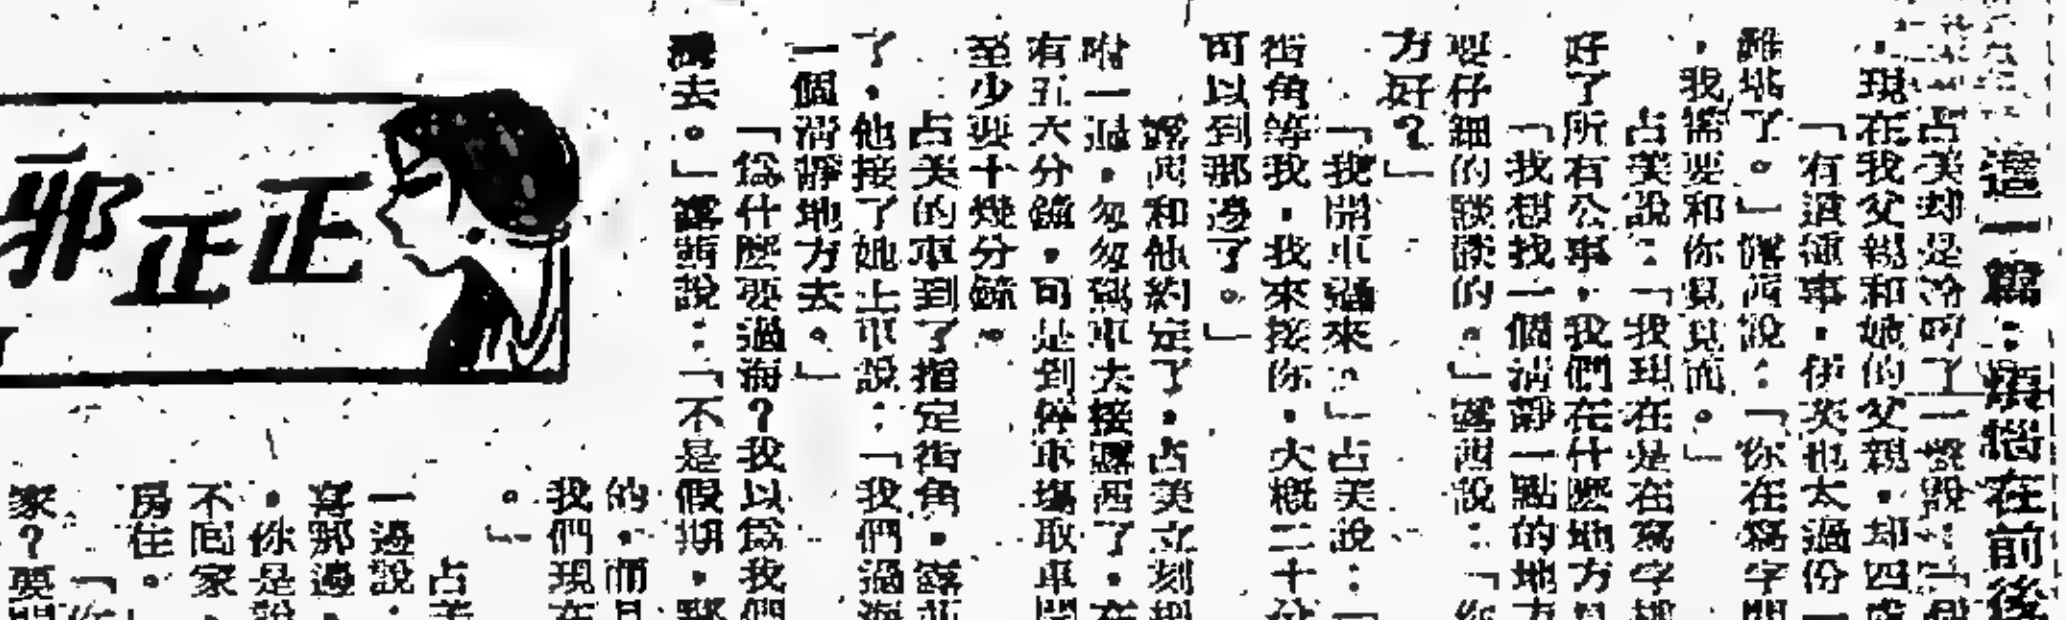 這一篇：煩惱在前後
占美却是冷的了一聲說：「
，現在我父親和她的父親，却四處
「有這種事，伊芙也太過份一
難堪了。」露西說：「你在寫字間
，我需要和你見見面。」
占美說：「我現在是在寫字樓
好了所有公事，我們在什麼地方見
「我想找一個清靜一點的地方
要仔細的談談的。」露西說：「你
方好？」
「我開車過來。」占美說：「
街角等我，我來接你，大概二十分
可以到那邊了。」
露西和他約定了，占美立刻
咐一遍，匆匆駕車去接露西了，在
有五六分鐘，可是到停車場取車開
至少要十幾分鐘。
占美的車到了指定街角，露西
了，他接了她上車說：「我們過海
一個清靜地方去。」
「為什麼要過海？我以為我們
灣去。」露西說：「不是假期，那
正正邪
的，而且
我們現在
。」
占美
一邊說，
喜那邊，
，你是說
不回家，
房住。
「你
家？要開